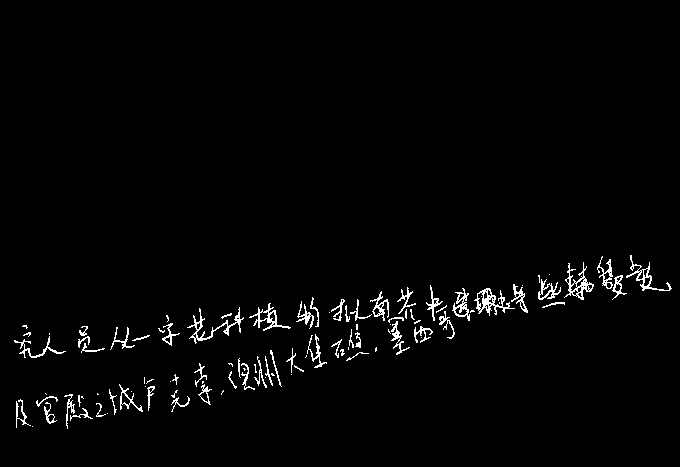 究人员从一字花科植物拟南芥中
及宫殿之城卢克索、澳洲大堡礁、墨西哥